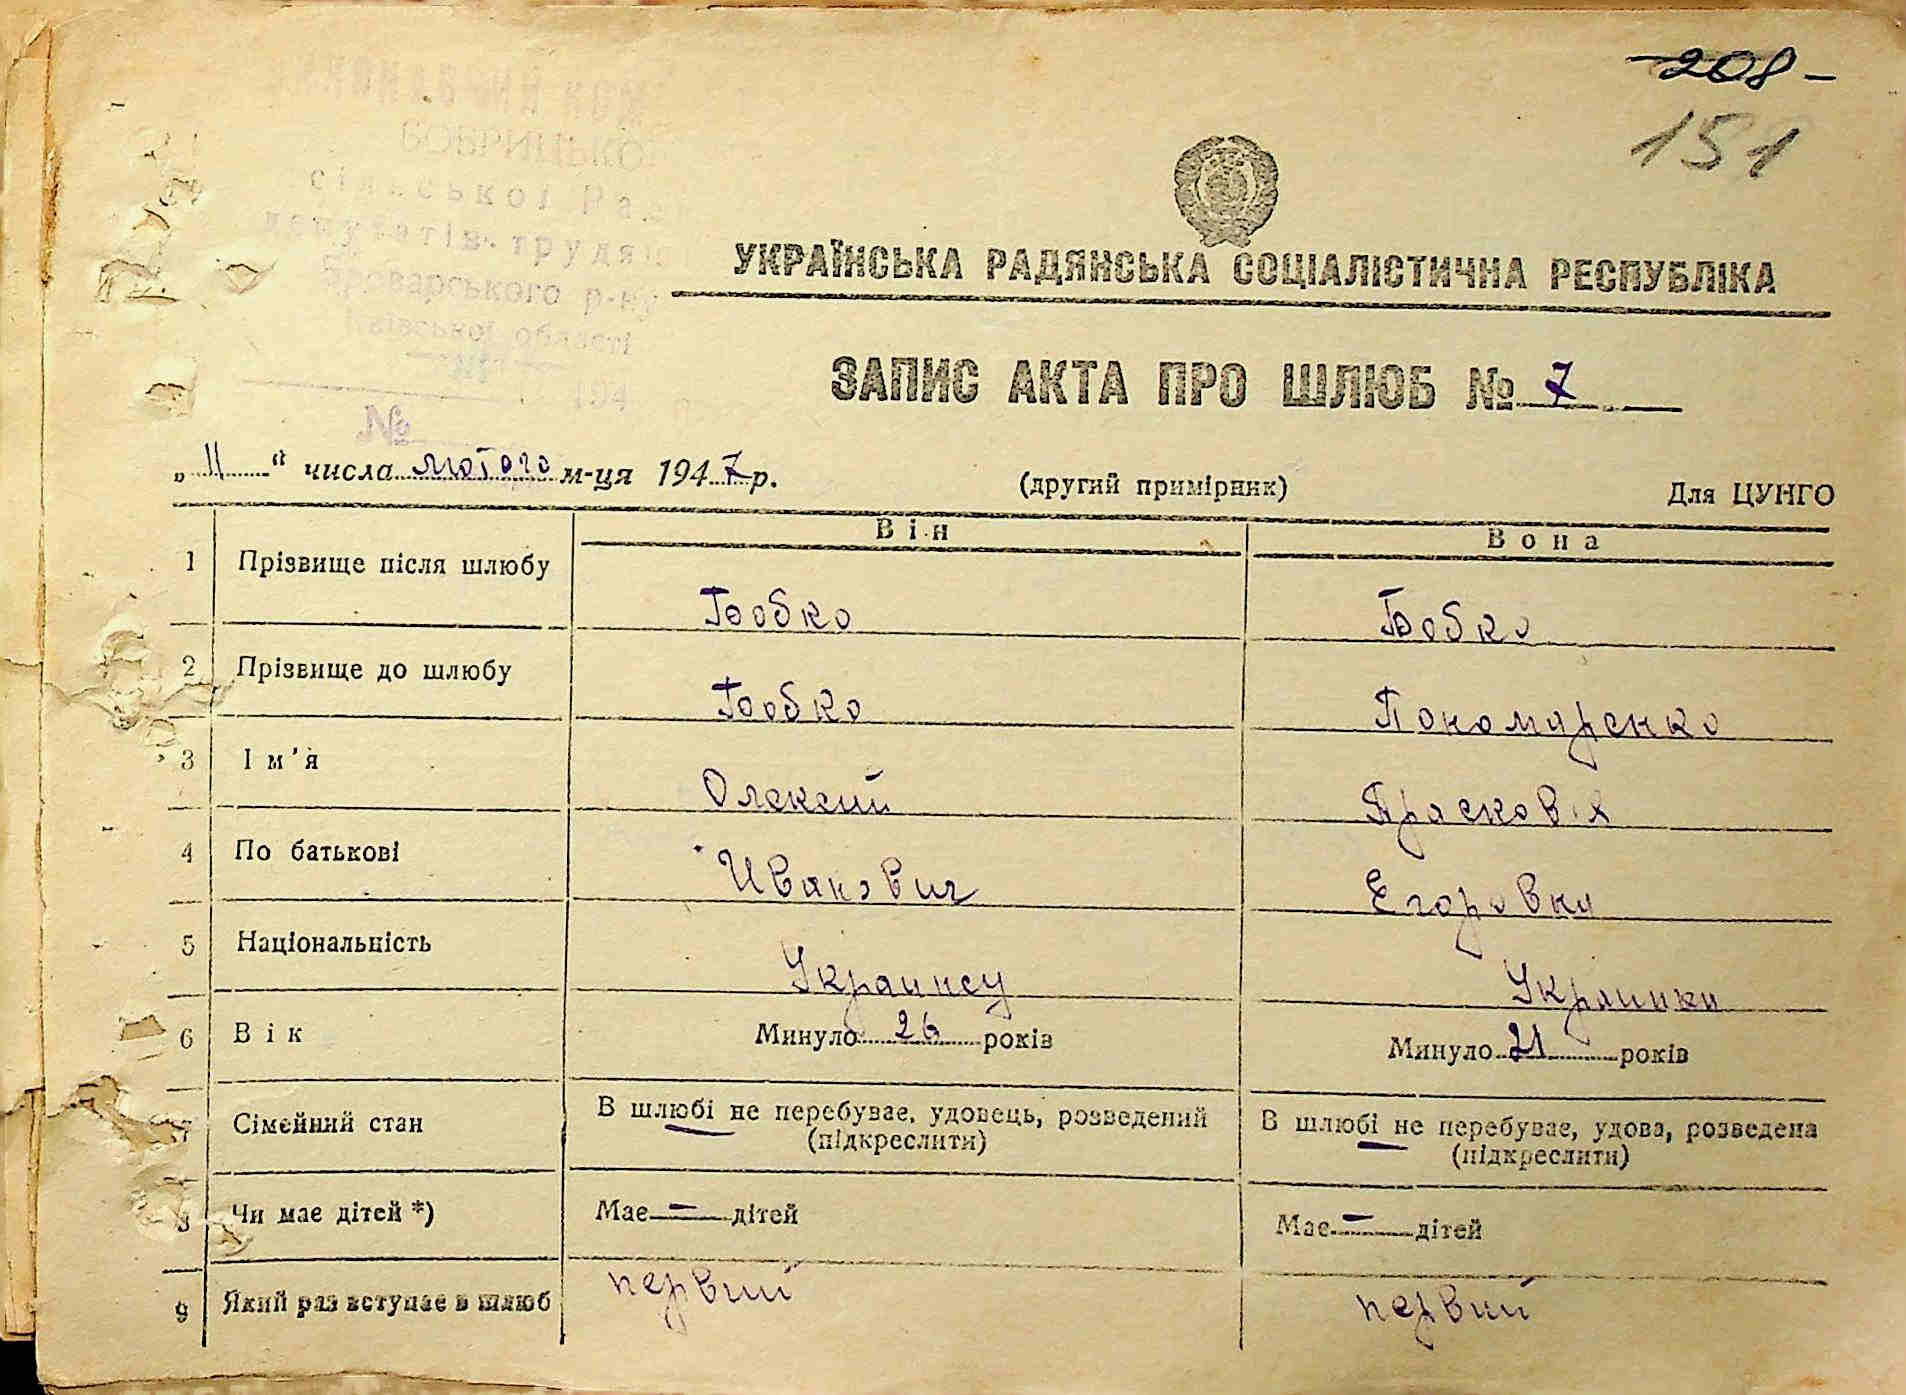 -208-
151
виконавчий ком
БОБРИЦЬКО
сільської Рад
депутатів трудящ
Броварського р-ну
Київської області
194
№
УКРАЇНСЬКА РАДЯНСЬКА СОЦІАЛІСТИЧНА РЕСПУБЛІКА
ЗАПИС АКТА ПРО ШЛЮБ № 7
„11“ числа лютого м-ця 1947 р. (другий примірник) Для ЦУНГО
Він Вона
1 Прізвище після шлюбу Бобко Бобко
2 Прізвище до шлюбу Бобко Пономаренко
3 Ім'я Олексий Прасковія
4 По батькові Иванович Егоровна
5 Національність Украинец Украинка
6 Вік Минуло 26 років Минуло 21 років
7 Сімейний стан В шлюбі не перебуває, удовець, розведений (підкреслити) В шлюбі не перебуває, удова, розведена (підкреслити)
8 Чи має дітей *) Має — дітей Має — дітей
9 Який раз вступає в шлюб первий первий